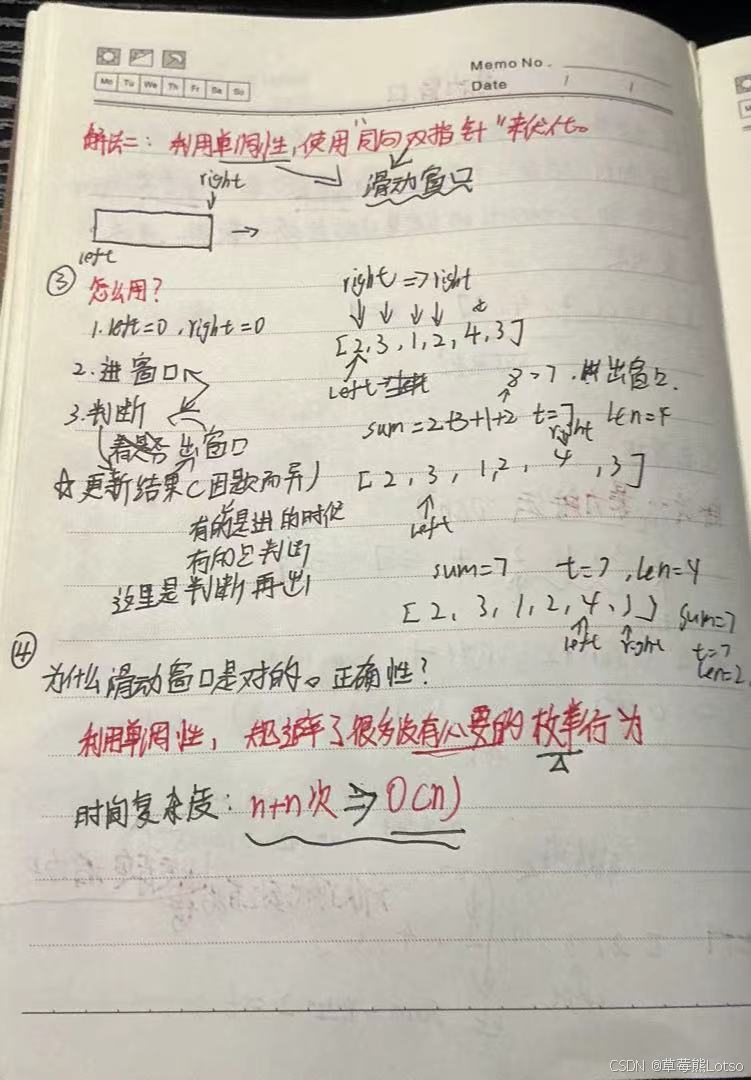 Memo No.
Mo Tu We Th Fr Sa Su
Date / /
解法二：利用单调性，使用"同向双指针"来优化。
滑动窗口
right
left
③ 怎么用？
right => right
1. left=0, right=0
[2, 3, 1, 2, 4, 3]
left
2. 进窗口
8>=7. 出窗口.
3. 判断
sum=2+3+1+2 t=7 len=4
出窗口
right
☆更新结果(因题而异)
[2, 3, 1, 2, 4, 3]
left
有的是进的时候
有的是判断
sum=7 t=7, len=4
这里是判断再出
[2, 3, 1, 2, 4, 3] sum=7
left right t=7
len=2
④
为什么滑动窗口是对的。正确性？
利用单调性，规避了很多没有必要的枚举行为
时间复杂度：n+n次 => O(n)
CSDN @草莓熊Lotso